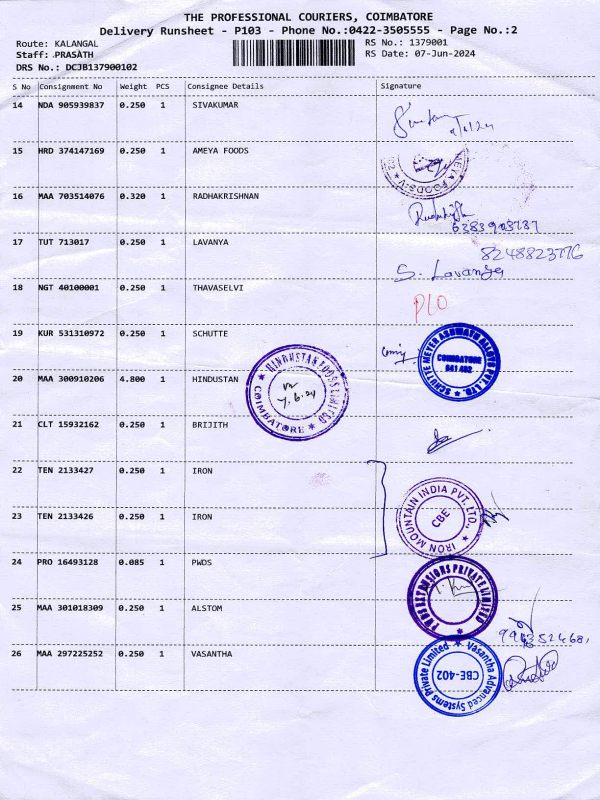 THE PROFESSIONAL COURIERS, COIMBATORE
Delivery Runsheet - P103 - Phone No.:0422-3505555 - Page No.:2
Route: KALANGAL
RS No.: 1379001
Staff: PRASATH
RS Date: 07-Jun-2024
DRS No.: DCJB137900102
S No Consignment No Weight PCS Consignee Details Signature
14 NDA 905939837 0.250 1 SIVAKUMAR
15 HRD 374147169 0.250 1 AMEYA FOODS
16 MAA 703514076 0.320 1 RADHAKRISHNAN
6383903737
17 TUT 713017 0.250 1 LAVANYA
8248823776
S. Lavanya
18 NGT 40100001 0.250 1 THAVASELVI
19 KUR 531310972 0.250 1 SCHUTTE
SCHUTTE MEYER ASHWATH ALLOYS PVT. LTD.
COIMBATORE
641 402
20 MAA 300910206 4.800 1 HINDUSTAN
HINDUSTAN FOODS LIMITED
COIMBATORE
7.6.24
21 CLT 15932162 0.250 1 BRIJITH
22 TEN 2133427 0.250 1 IRON
23 TEN 2133426 0.250 1 IRON
IRON MOUNTAIN INDIA PVT. LTD.,
CBE
24 PRO 16493128 0.085 1 PWDS
PRIVATE LIMITED
25 MAA 301018309 0.250 1 ALSTOM
26 MAA 297225252 0.250 1 VASANTHA
Vasantha Advanced Systems Private Limited
CBE-402